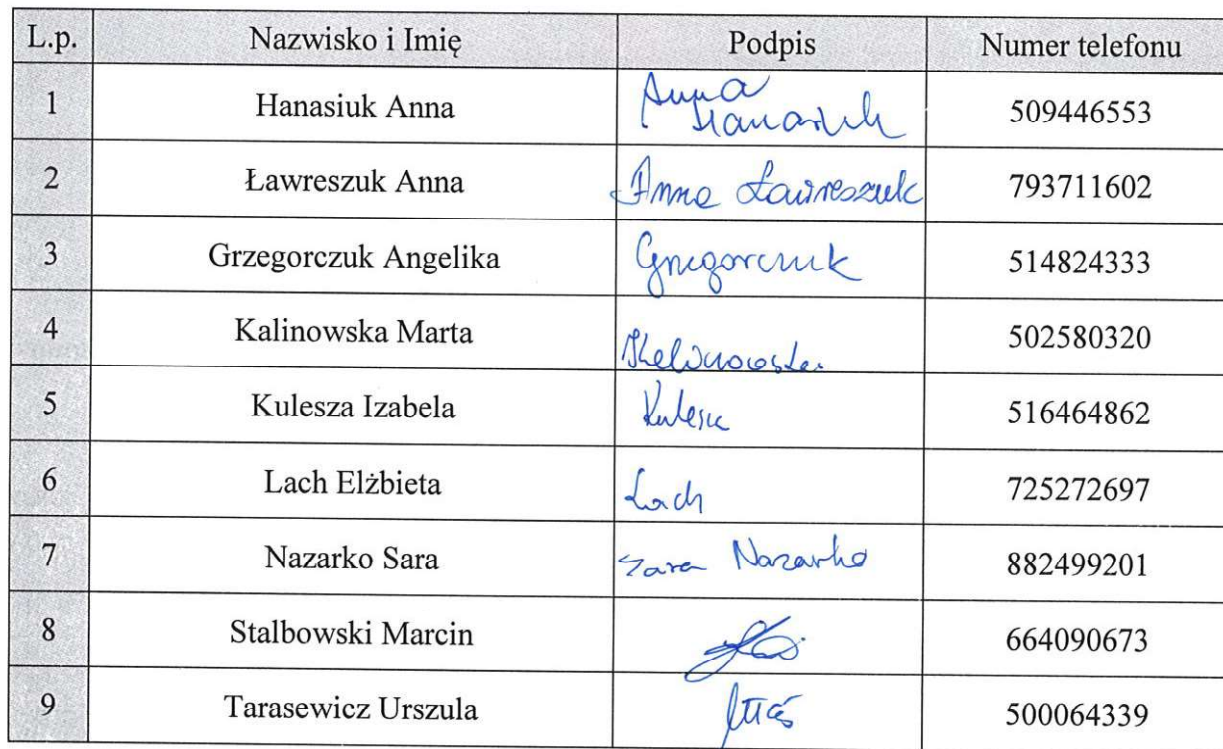 L.p. Nazwisko i Imię Podpis Numer telefonu
1 Hanasiuk Anna Anna Hanasiuk 509446553
2 Ławreszuk Anna Anna Ławreszuk 793711602
3 Grzegorczuk Angelika Grzegorczuk 514824333
4 Kalinowska Marta Kalinowska 502580320
5 Kulesza Izabela 516464862
6 Lach Elżbieta Lach 725272697
7 Nazarko Sara Sara Nazarko 882499201
8 Stalbowski Marcin 664090673
9 Tarasewicz Urszula 500064339